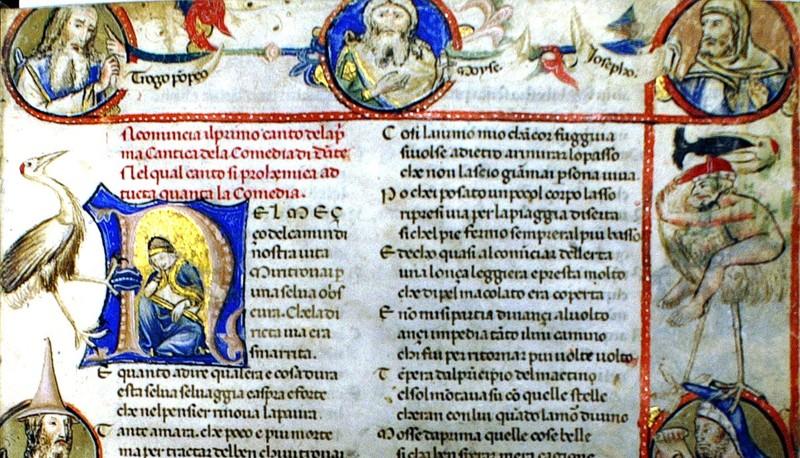 Trogo põpeo
Moyse.
Josepho.
Icomincia il primo canto dela p̃
ma Cantica dela Comedia di dãte
Nel qual canto si prohemiça ad
tucta quanta la Comedia.
NEL MEÇ
ço del camin di
nostra uita
Mi ritrouai p
una selua obs
cura. Che la di
ricta uia era
smarrita.
E quanto a dire qual era e cosa dura
esta selua seluaggia e aspra e forte
che nel pensier rinoua la paura.
Tante amara. che poco e piu morte
ma per tractar del ben chui trouai
Cosi lanimo mio chancor fuggiua
si uolse adietro a rimirar lo passo
che non lascio giamai psona uiua.
Po chei posato un poco el corpo lasso
ripresi uia per la piaggia diserta
si chel pie fermo sempre era l piu basso
Et eccho quasi al cominciar dellerta
una lonça leggiera e presta molto
che di pel macolato era coperta
E nõ mi si partia dinançi al uolto
ançi impedia tãto il mi camino
chi fui per ritornar piu uolte uolto
Tẽpera dal prĩcipio del mactino
el sol mõtaua sũ cõ quelle stelle
cheran con lui quãdo lamor diuino
Mosse daprima quelle cose belle
si cha ben sperar mera cagione